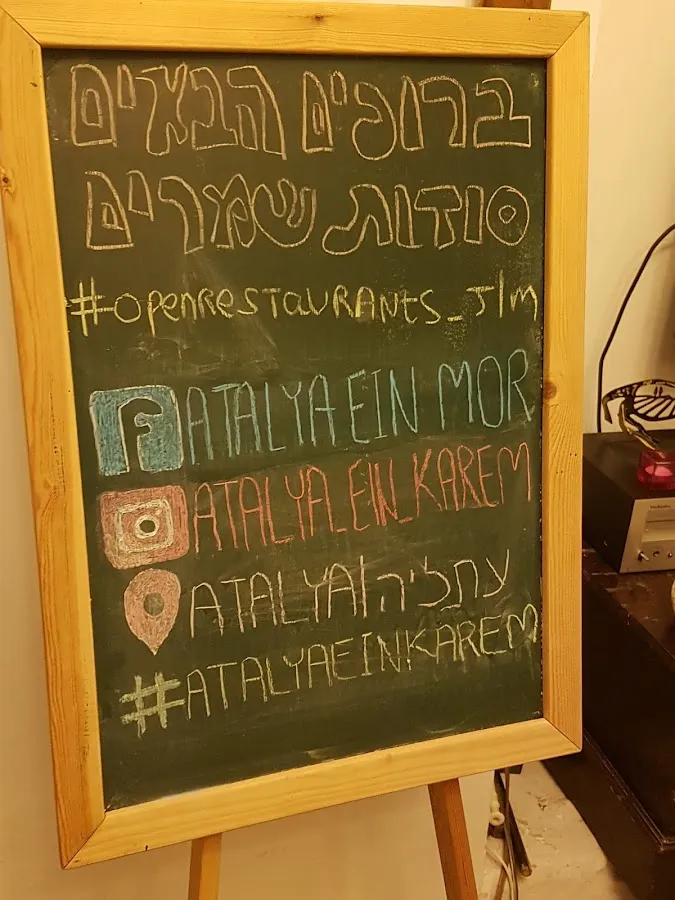 ברוכים הבאים
סודות שמרים
#openRestauRants_Jlm
f ATALYA EIN MOR
ATALYA_EIN_KAREM
ATALYA|עתליה
#ATALYAEINKAREM